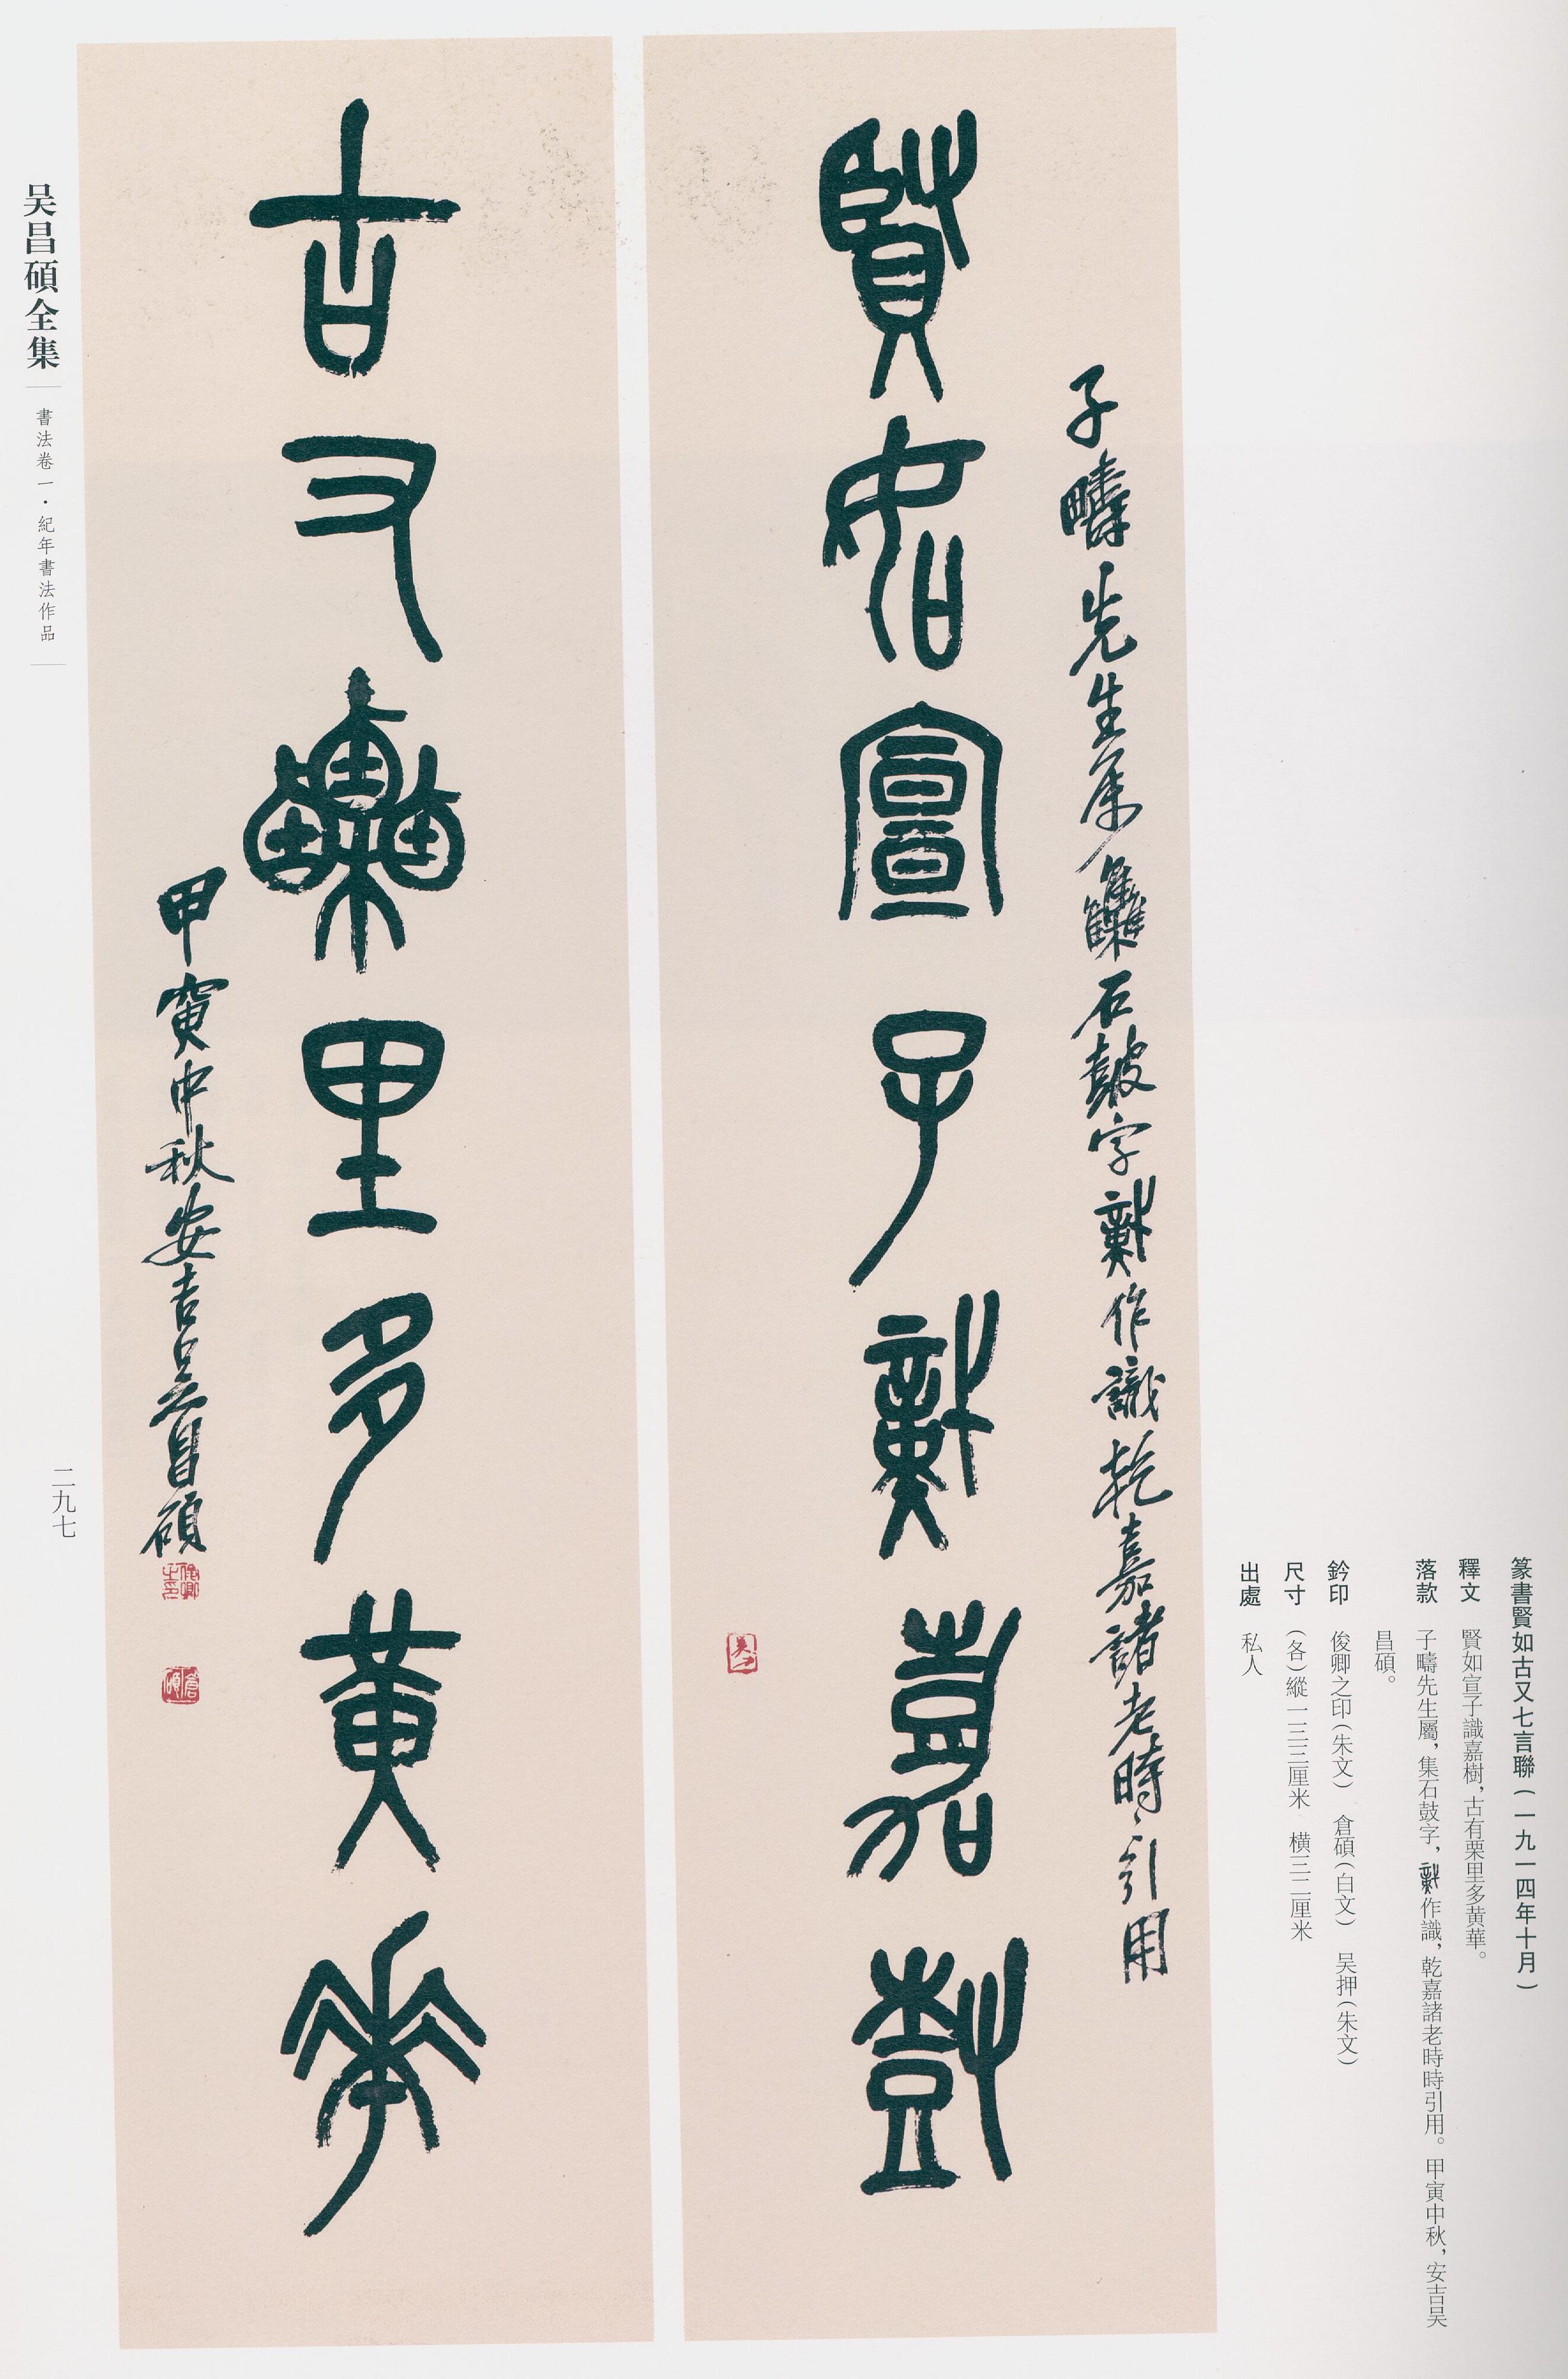 篆書賢如古又七言聯（一九一四年十月）
釋文　賢如宣子識嘉樹，古有栗里多黄華。
落款　子疇先生屬，集石鼓字，𧥺作識，乾嘉諸老時時引用。甲寅中秋，安吉吴
昌碩。
鈐印　俊卿之印（朱文）　倉碩（白文）　吴押（朱文）
尺寸　（各）縱一三三厘米　橫三二厘米
出處　私人
子疇先生屬集石鼓字作識乾嘉諸老時〻引用
賢如宣子識嘉樹
古又栗里多黄華
甲寅中秋安吉吴昌碩
俊卿之印
倉碩
吴昌碩全集
書法卷一・紀年書法作品
二九七